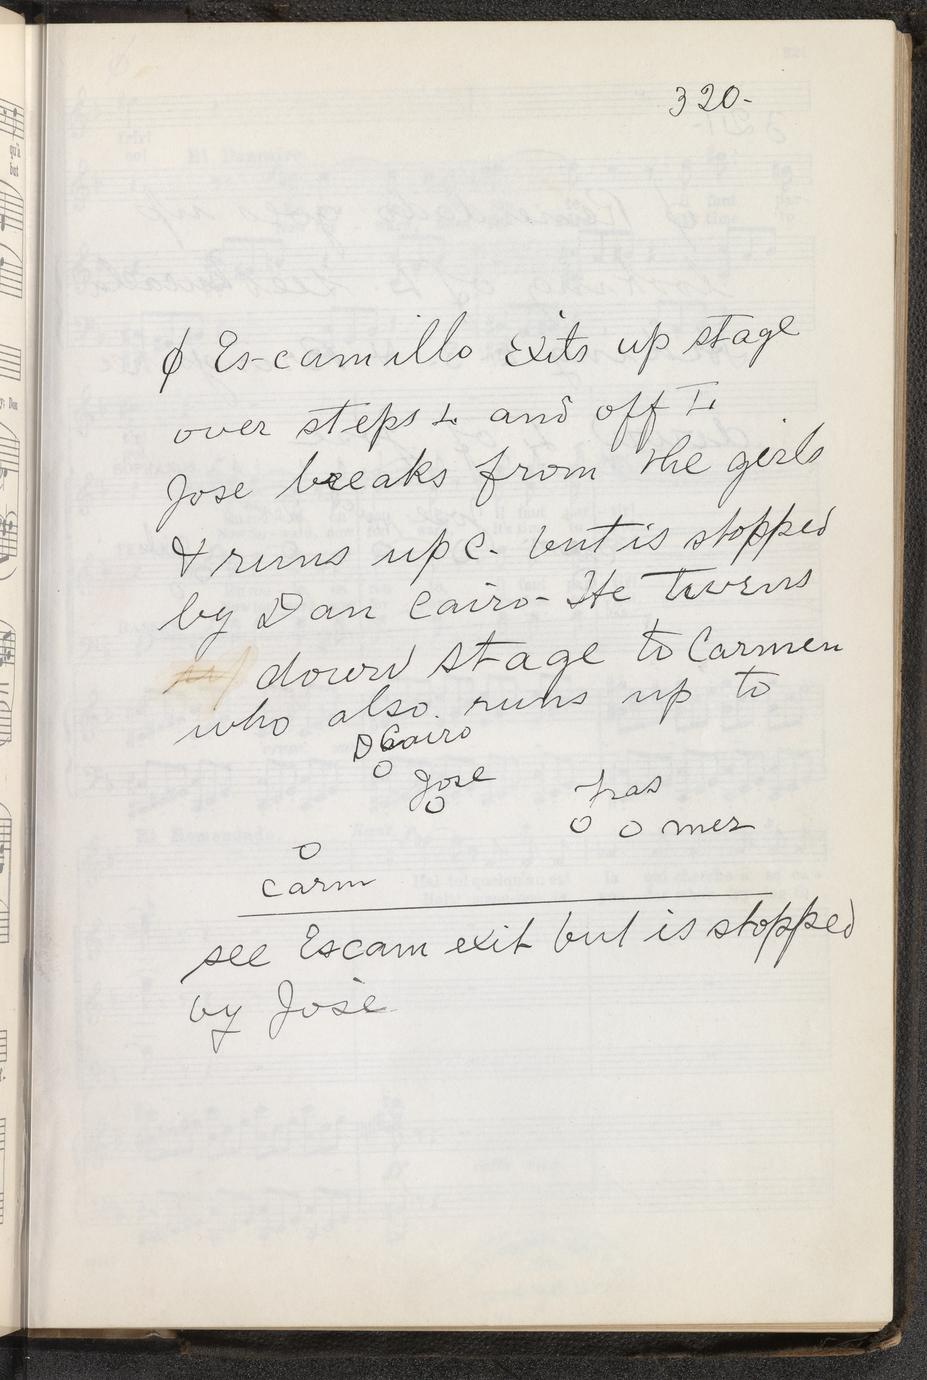 320-
ϕ Escamillo exits up stage
over steps L and off L
Jose breaks from the girls
& runs up C. but is stopped
by Dan Cairo - He turns
down stage to Carmen
who also runs up to
D Cairo
Jose
fras
mer
carm
see Escam exit but is stopped
by José